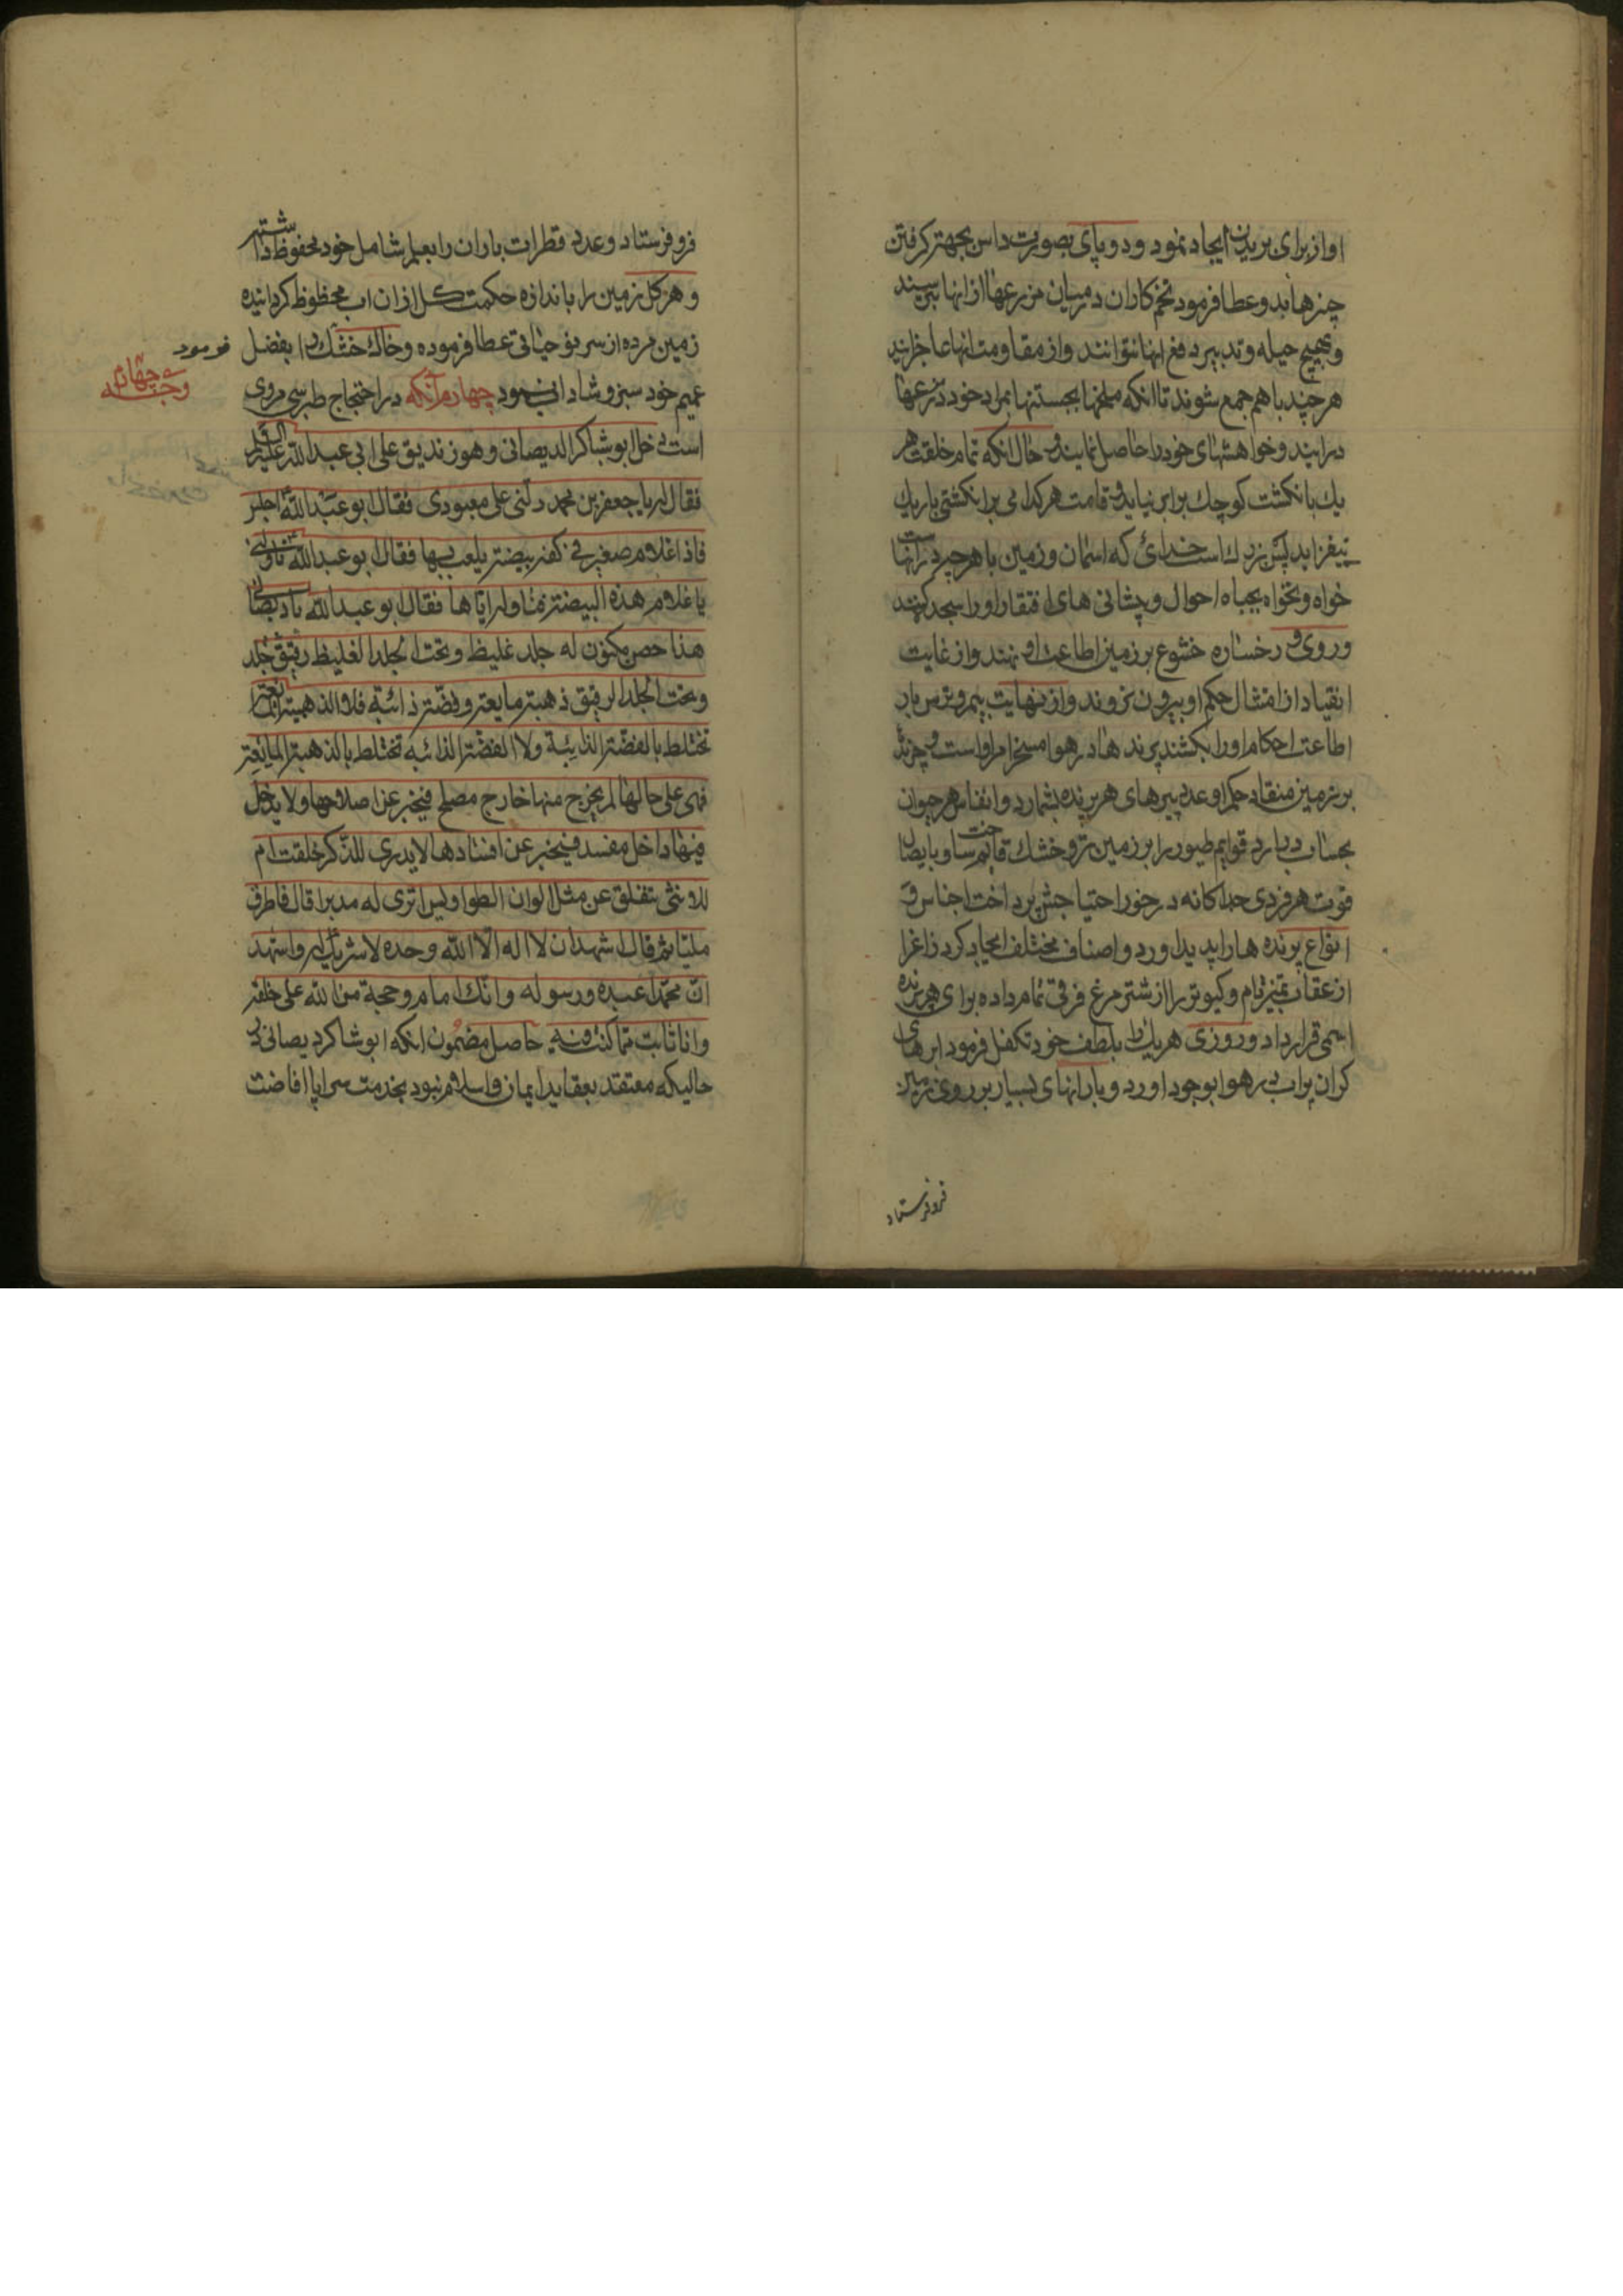 او از برای بریدن ایجاد نمود و دو پای بصورت داس بجهة گرفتن
چیزها بدو عطا فرمود تخم کاران در میان مزرعها از انها بترسند
و بهیچ حیله و تدبیر دفع انها نتوانند و از مقاومت انها عاجزایند
هر چند با هم جمع شوند تا انکه ملخها بجستنها بمراد خود در مزرعها
درایند و خواهشهای خود را حاصل نمایند و حال انکه تمام خلقت هر
یك با نکشت کوچك برابر نیاید و قامت هر کدامی بر انکشتی باریك
نیفزاید پس بزرك است خدائی که اسمان و زمین با هر چه در انهاست
خواه و نخواه بجباه احوال و پیشانی های افتقار او را سجده کنند
و روی و رخساره خشوع بر زمین اطاعت او نهند و از غایت
انقیاد از امتثال حکم او بیرون نروند و از نهایت بیم و ترس بار
اطاعت احکام او را بکشند پرند ها در هوا مسخر امر او است و چرند
بر زمین منقاد حکم او عدد پرهای هر پرنده بشمارد و انفاس هر حیوان
بحساب در ارد قوایم طیور را بر زمین تر و خشك قایم ساخت و بایصال
قوت هر فردی جداکانه در خور احتیاجش پرداخت اجناس و
انواع پرنده ها را پدید اورد و اصناف مختلف ایجاد کرد زاغ را
از عقاب تمیز تام و کبوتر را از شتر مرغ فرقی تمام داده برای هر پرنده
اسمی قرار داد و روزی هر یك را بلطف خود تکفل فرمود ابرهای
کران پراب در هوا بوجود اورد و بارانهای بسیار بر روی زمین
فرو فرستاد
فرو فرستاد و عدد قطرات باران را بعلم شامل خود محفوظ داشته
و هر کل زمین را باندازه حکمت کل ازان اب محظوظ کردانیده
زمین مرده از سر نو حیاتی عطا فرموده و خاك خشك را بفضل
عمیم خود سبز و شاداب فرمود چهارم آنکه در احتجاج طبرسی مروی
فرمود
وجه چهارم
است دخل ابو شاکر الدیصانی و هو زندیق علی ابی عبد الله علیه السلام
فقال له یا جعفر بن محمد دلنی علی معبودی فقال ابو عبد الله اجلس
فاذا غلام صغیر فی کفه بیضة یلعب بها فقال ابو عبد الله ناولنی
یا غلام هذه البیضة فناوله ایاها فقال ابو عبد الله یا دیصانی
هذا حصن مکنون له جلد غلیظ و تحت الجلد الغلیظ جلد رقیق
و تحت الجلد الرقیق ذهبة مایعة و فضة ذائبة فلا الذهبة المایعة
تختلط بالفضة الذائبة ولا الفضة الذائبة تختلط بالذهبة المایعة
فهی علی حالها لم یخرج منها خارج مصلح فیخبر عن اصلاحها ولا یدخل
فیها داخل مفسد فیخبر عن افسادها لا یدری للذکر خلقت ام
للانثی تنفلق عن مثل الوان الطواویس اتری له مدبرا قال فاطرق
ملیا ثم قال اشهد ان لا اله الا الله وحده لا شریك له و اشهد
ان محمدا عبده و رسوله و انك امام و حجة من الله علی خلقه
و انا تائب مما کنت فیه حاصل مضمون انکه ابو شاکر دیصانی در
حالیکه معتقد بعقاید ایمان و اسلام نبود بخدمت سراپا افاضت